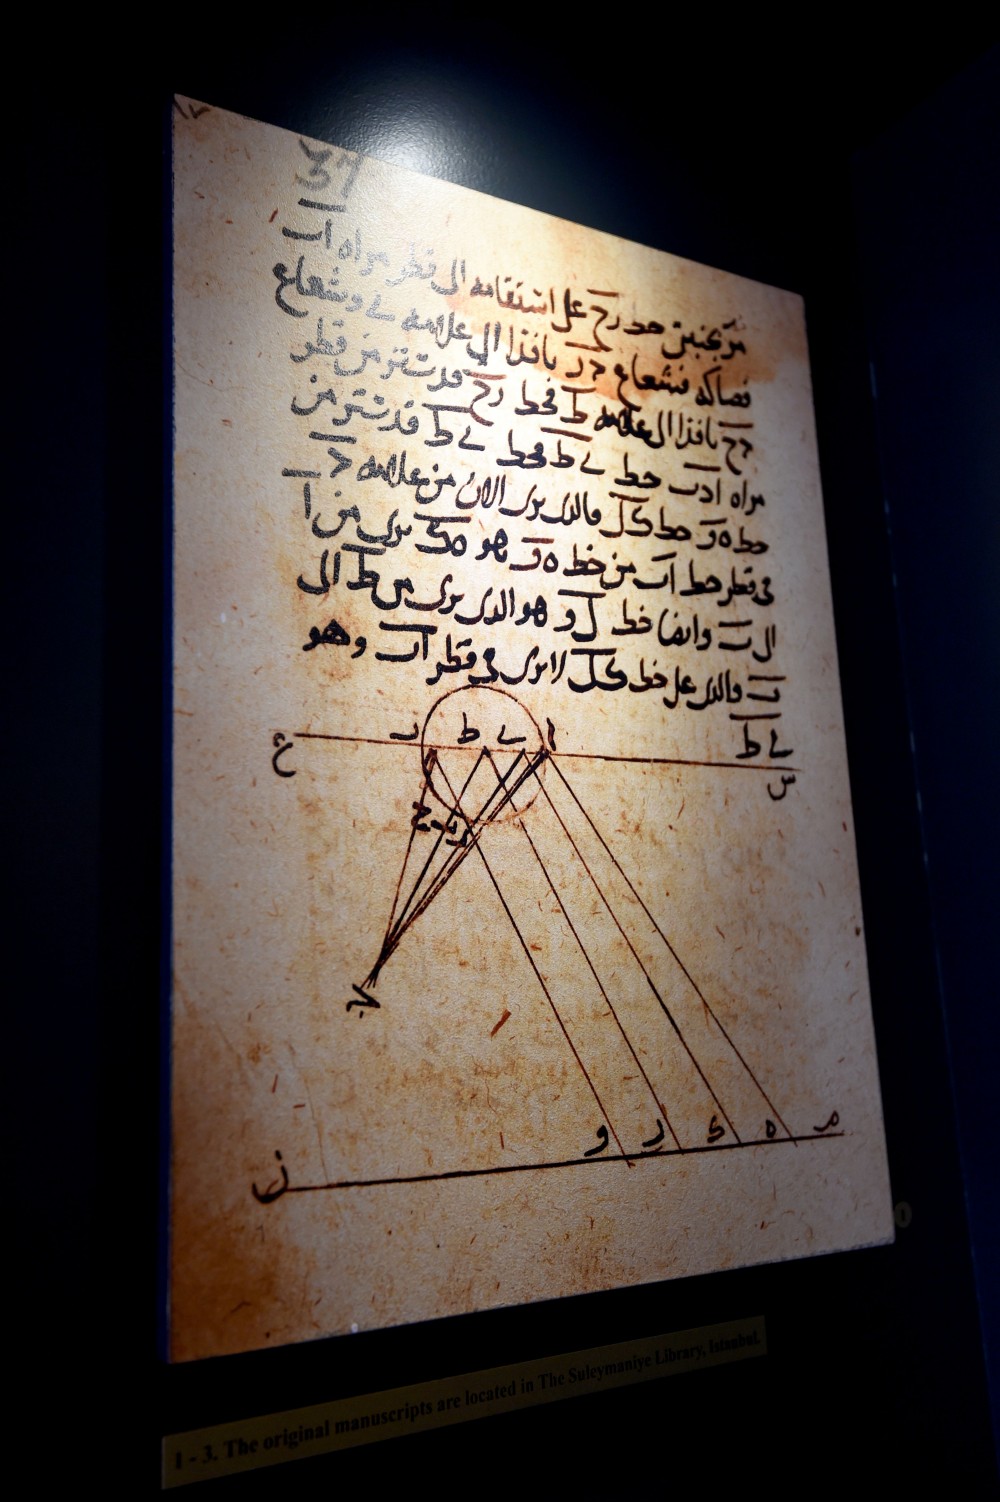 37
مرَ بجنبتى خط رح على استقامه الى قطر مراه اب
فصاكه فشعاع حر نافذا الى علامه ى وشعاع
حح نافذا الى علامه ط فخط رح قد ستر من قطر
مراه ادب خط ى ط فخط ى ط قد ستر من
خط ه و خط ك ل فالذى يرى الان من علامه ح
فى قطر خط اب من خط ه و هو ه ك يرى من ا
الى ى وايضا خط ل و هو الذى يرى من ط الى
ب فالذى على خط ك ل لا يرى فى قطر اب وهو
ى ط
ع ب ط ى ا س
ح
ن و ل ك ه م
1 - 3. The original manuscripts are located in The Suleymaniye Library, Istanbul.
1